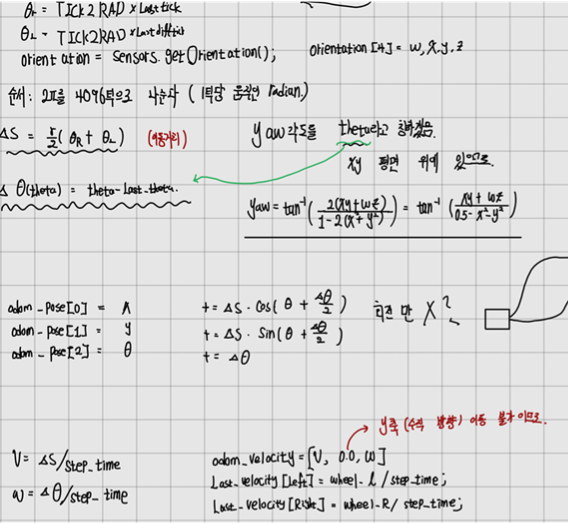 θr = TICK2RAD × Last tick
θL = TICK2RAD × Last difftick
orientation = Sensors.getOrientation(); orientation[4] = w, x, y, z
순서: 2π를 4096틱으로 나눈다 (1틱당 움직인 radian.)
ΔS = r/2 (θR + θL) (이동거리)
yaw각도를 theta라고 칭하겠음.
xy 평면 위에 있으므로.
Δθ(theta) = theta - last_theta.
yaw = tan⁻¹(2(xy+wz)/1-2(x²+y²)) = tan⁻¹(xy+wz/0.5-x²-y²)
odom_pose[0] = x += ΔS · cos(θ + Δθ/2) 만 X?
odom_pose[1] = y += ΔS · Sin(θ + Δθ/2)
odom_pose[2] = θ += Δθ
y축 (수직 방향) 이동 불가 이므로.
V = ΔS/step_time odom_velocity = [V, 0.0, w]
Last_velocity[Left] = wheel_l / step_time;
w = Δθ/step_time Last_velocity[Right] = wheel_R / step_time;